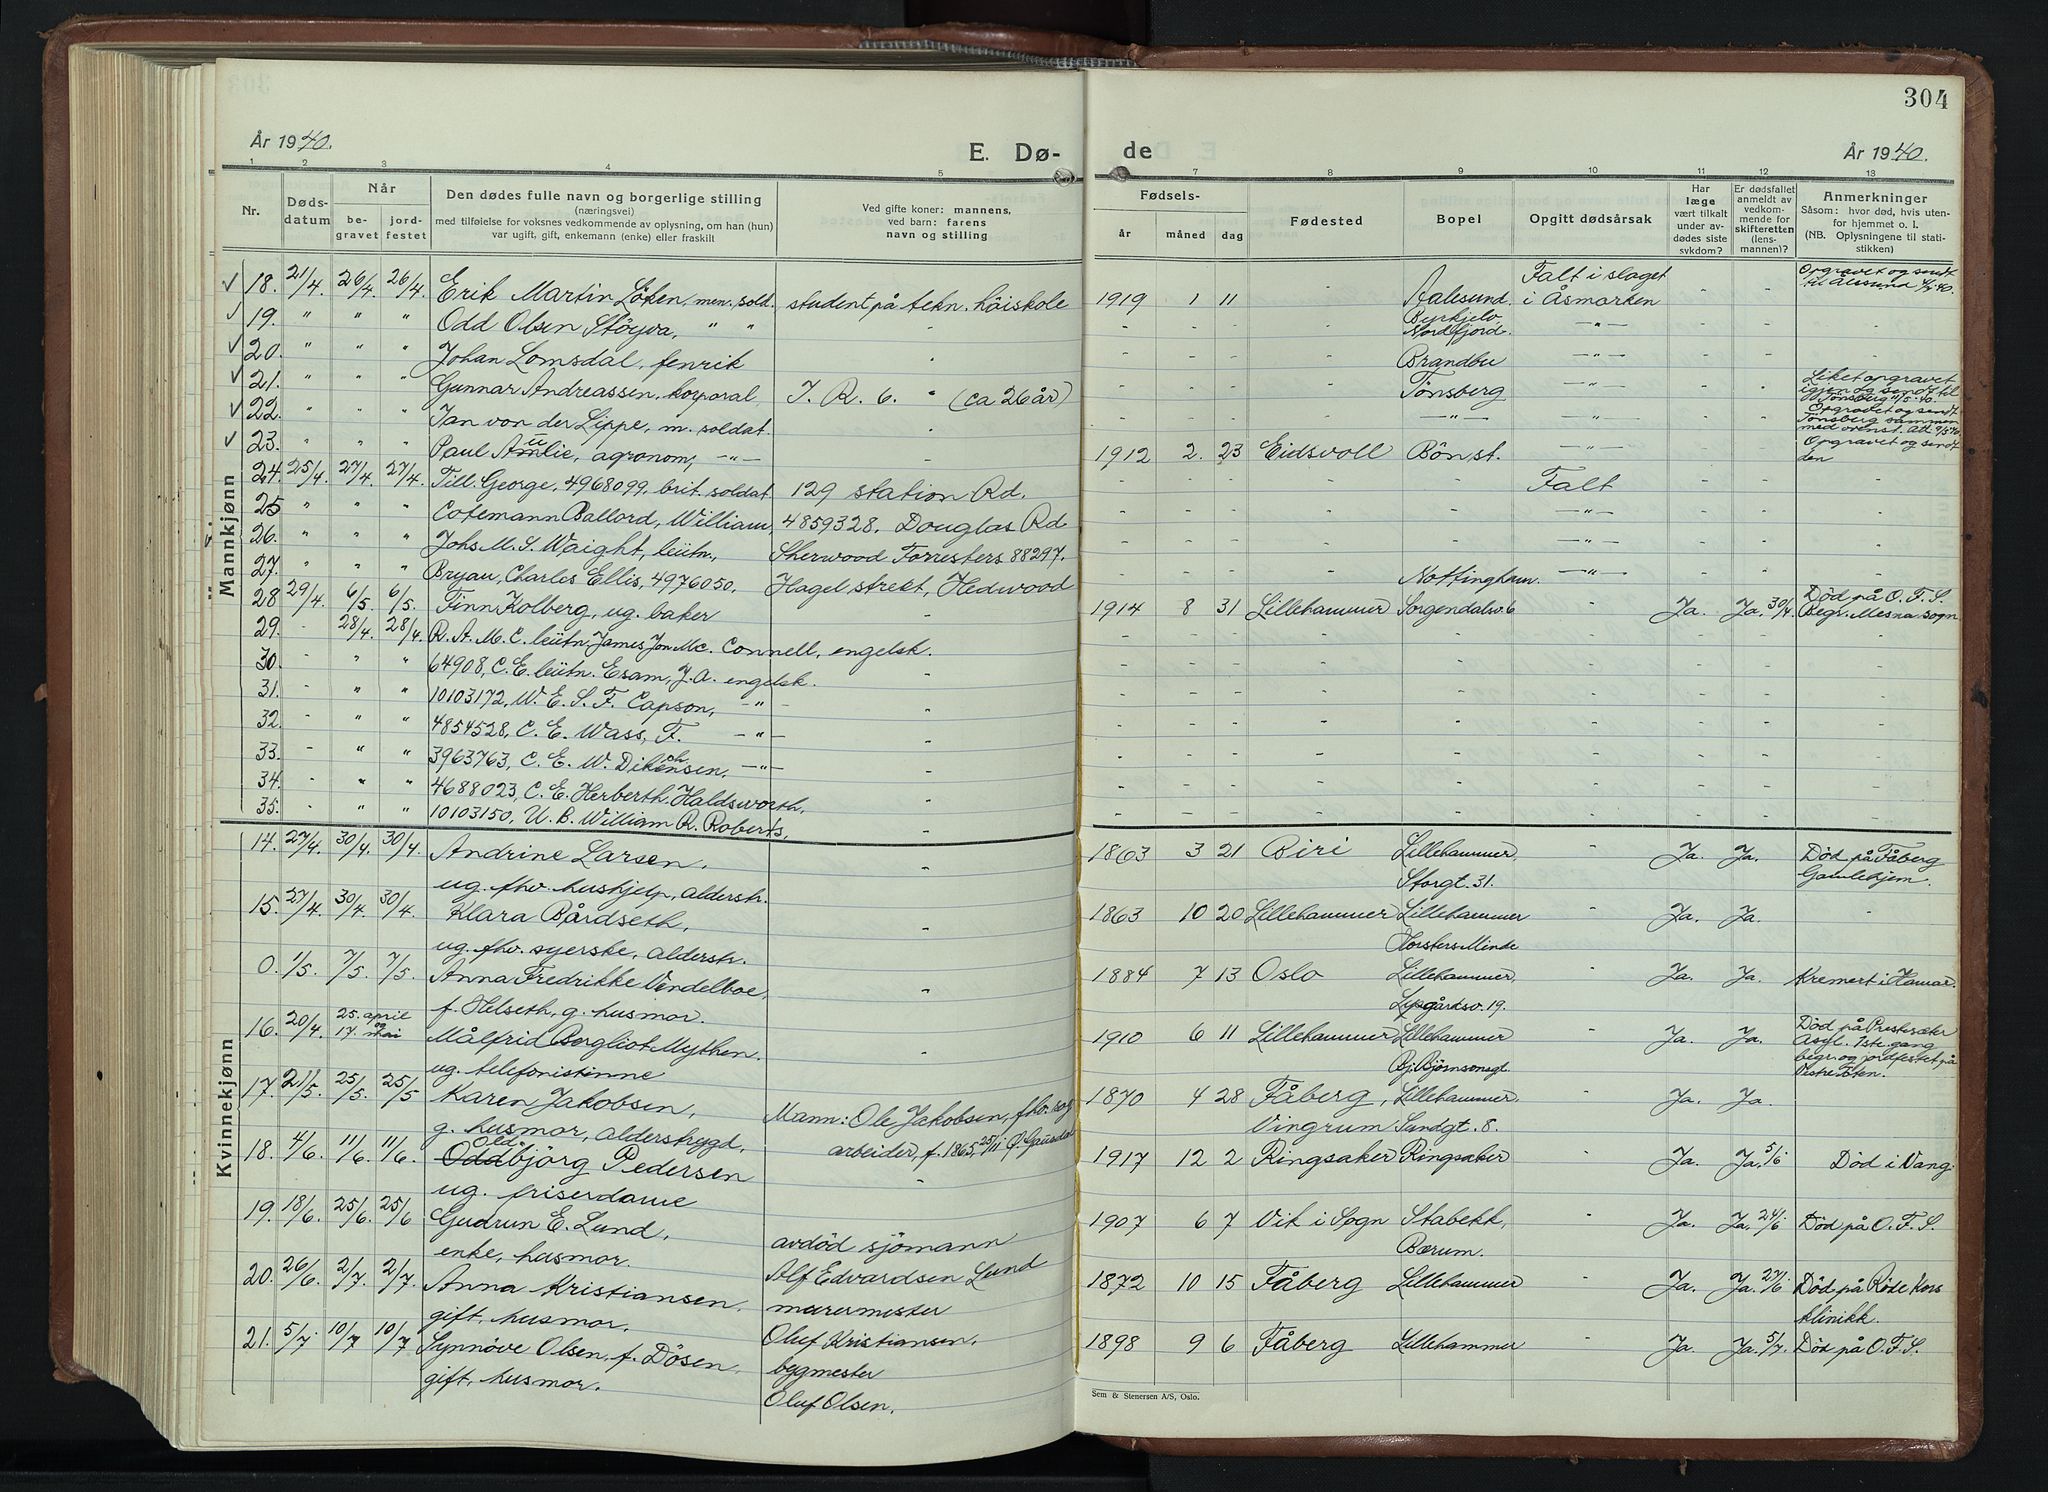 304
År 1940.
E. Dø-
de
År 1940.
1 2 3 4 5 7 8 9 10 11 12 13
Nr.
Døds-
datum
Når
be-
gravet
jord-
festet
Den dødes fulle navn og borgerlige stilling
(næringsvei)
med tilføielse for voksnes vedkommende av oplysning, om han (hun)
var ugift, gift, enkemann (enke) eller fraskilt
Ved gifte koner: mannens,
ved barn: farens
navn og stilling
Fødsels-
år måned dag
Fødested
Bopel
Opgitt dødsårsak
Har
læge
vært tilkalt
under av-
dødes siste
svkdom?
Er dødsfallet
anmeldt av
vedkom-
mende for
skifteretten
(lens-
mannen)?
Anmerkninger
Såsom: hvor død, hvis uten-
for hjemmet o. l.
(NB. Oplysningene til stati-
stikken)
Mannkjønn
18. 21/4. 26/4. 26/4. Erik Martin Löken, men. sold. student på tekn. höiskole 1919 1 11 - Aalesund Falt i slaget i Åsmarken - - Opgravet og sendt til Ålesund
19. " " " Odd Olsen Støyva, " " - - - - - Byrkjelo Nordfjord. -"- - - -
20. " " " Johan Lomsdal, fenrik - - - - - Brandbu -"- - - -
21. " " " Gunnar Andreassen, korporal I. R. 6. " (ca 26 år) - - - - Tønsberg - - Liket opgravet igjen og sendt til Tönsberg 11/5-40.
22. " " " Jan von der Lippe, m. soldat. - - - - - -"- -"- - - Opgravet og sendt Tönsberg sammen med ovenst.
23. " " " Paul Amlie, agronom, -"- - 1912 2 23 Eidsvoll Bön st. -"- - - Opgravet og sendt den
24. 25/4. 27/4. 27/4. Till. George, 4968099, brit. soldat 129 station Rd. - - - - - Falt - - -
25 " " " Cotemann Ballord, William, 4859328. Douglas Rd - - - - - -"- - - -
26. " " " Johs M. S. Waight, leütn., Sherwood Forresters 88297. - - - - - -"- - - -
27. " " " Bryau, Charles Ellis, 4976050. Hagel strekt, Hedwood - - - - Nottingham. -"- - - -
28 29/4 6/5. 6/5. Finn Kolberg, ug. baker - 1914 8 31 Lillehammer Sorgendalsv. 6 - Ja. Ja, 30/4. Død på O. F. S. Begr. Mesna sogn
29. - 28/4. 28/4. R. A. M. C. leütn. James Jon Mc. Connell, engelsk.
30. - " " 64908, C. E. leütn. Esam, J. A. engelsk.
31. - " " 10103172, W. E. S. F. Capson, -"-
32. - " " 4854528, C. E. Wass, F. -"-
33. - " " 3963763, C. E. W. Dikensen, -"-
34. - " " 4688023, C. E. Herberth Haldsworth,
35. - " " 10103150, U. B. William R. Roberts,
Kvinnekjønn
14. 27/4. 30/4. 30/4. Andrine Larsen, - 1863 3 21 Biri Lillehammer, - Ja. Ja. Död på Fåberg
ug. fhv. hushjelp, alderstr. Storgt. 31. Gamlehjem.
15. 27/4. 30/4. 30/4. Klara Bårdseth, - 1863 10 20 Lillehammer Lillehammer - Ja. Ja. -
ug. fhv. syerske, alderstr. Minde
0. 1/5. 7/5. 7/5. Anna Fredrikke Vendelboe, - 1884 7 13 Oslo Lillehammer, - Ja. Ja. Kremert i Hamar.
f. Helseth, g. husmor. Lysgårdsv. 19.
16. 20/4. 25. april og 17. mai Målfrid Bergliot Mythen. - 1910 6 11 Lillehammer Lillehammer - Ja. Ja. Död på Presteseter
ug. telefonistinne Bj. Björnsonsgt. Asyl. 1ste gang
begr. og jordfestet på
Vestre Toten.
17. 21/5. 25/5. 25/5 Karen Jakobsen, Mann: Ole Jakobsen, fhv. 1870 4 28 Fåberg, Lillehammer. - Ja. Ja.
g. husmor, alderstrygd, arbeider, f. 1865 25/11 Ö. Gausdal Vingrum Sundgt. 8.
18. 4/6. 11/6. 11/6. Oddbjörg Pedersen - 1917 12 2 Ringsaker Ringsaker - Ja. Ja, 5/6 Död i Vang.
Old
ug. friserdame
19. 18/6. 25/6. 25/6 Gudrun E. Lund, avdöd sjömann 1907 6 7 Vik i Sogn Stabekk, - Ja. Ja, 24/6 Död på O. F. S.
enke, husmor. Alf Edvardsen Lund Bærum.
20. 26/6. 2/7. 2/7. Anna Kristiansen, murermester 1872 10 15 Fåberg Lillehammer - Ja. Ja. 27/6 Død på Røde Kors
gift, husmor. Oluf Kristiansen. klinikk.
21. 5/7. 10/7 10/7 Synnöve Olsen, f. Dösen, bygmester 1898 9 6 Fåberg Lillehammer - Ja. Ja. 5/7. Död på O. F. S.
gift, husmor. Oluf Olsen.
Sem & Stenersen A/S, Oslo.